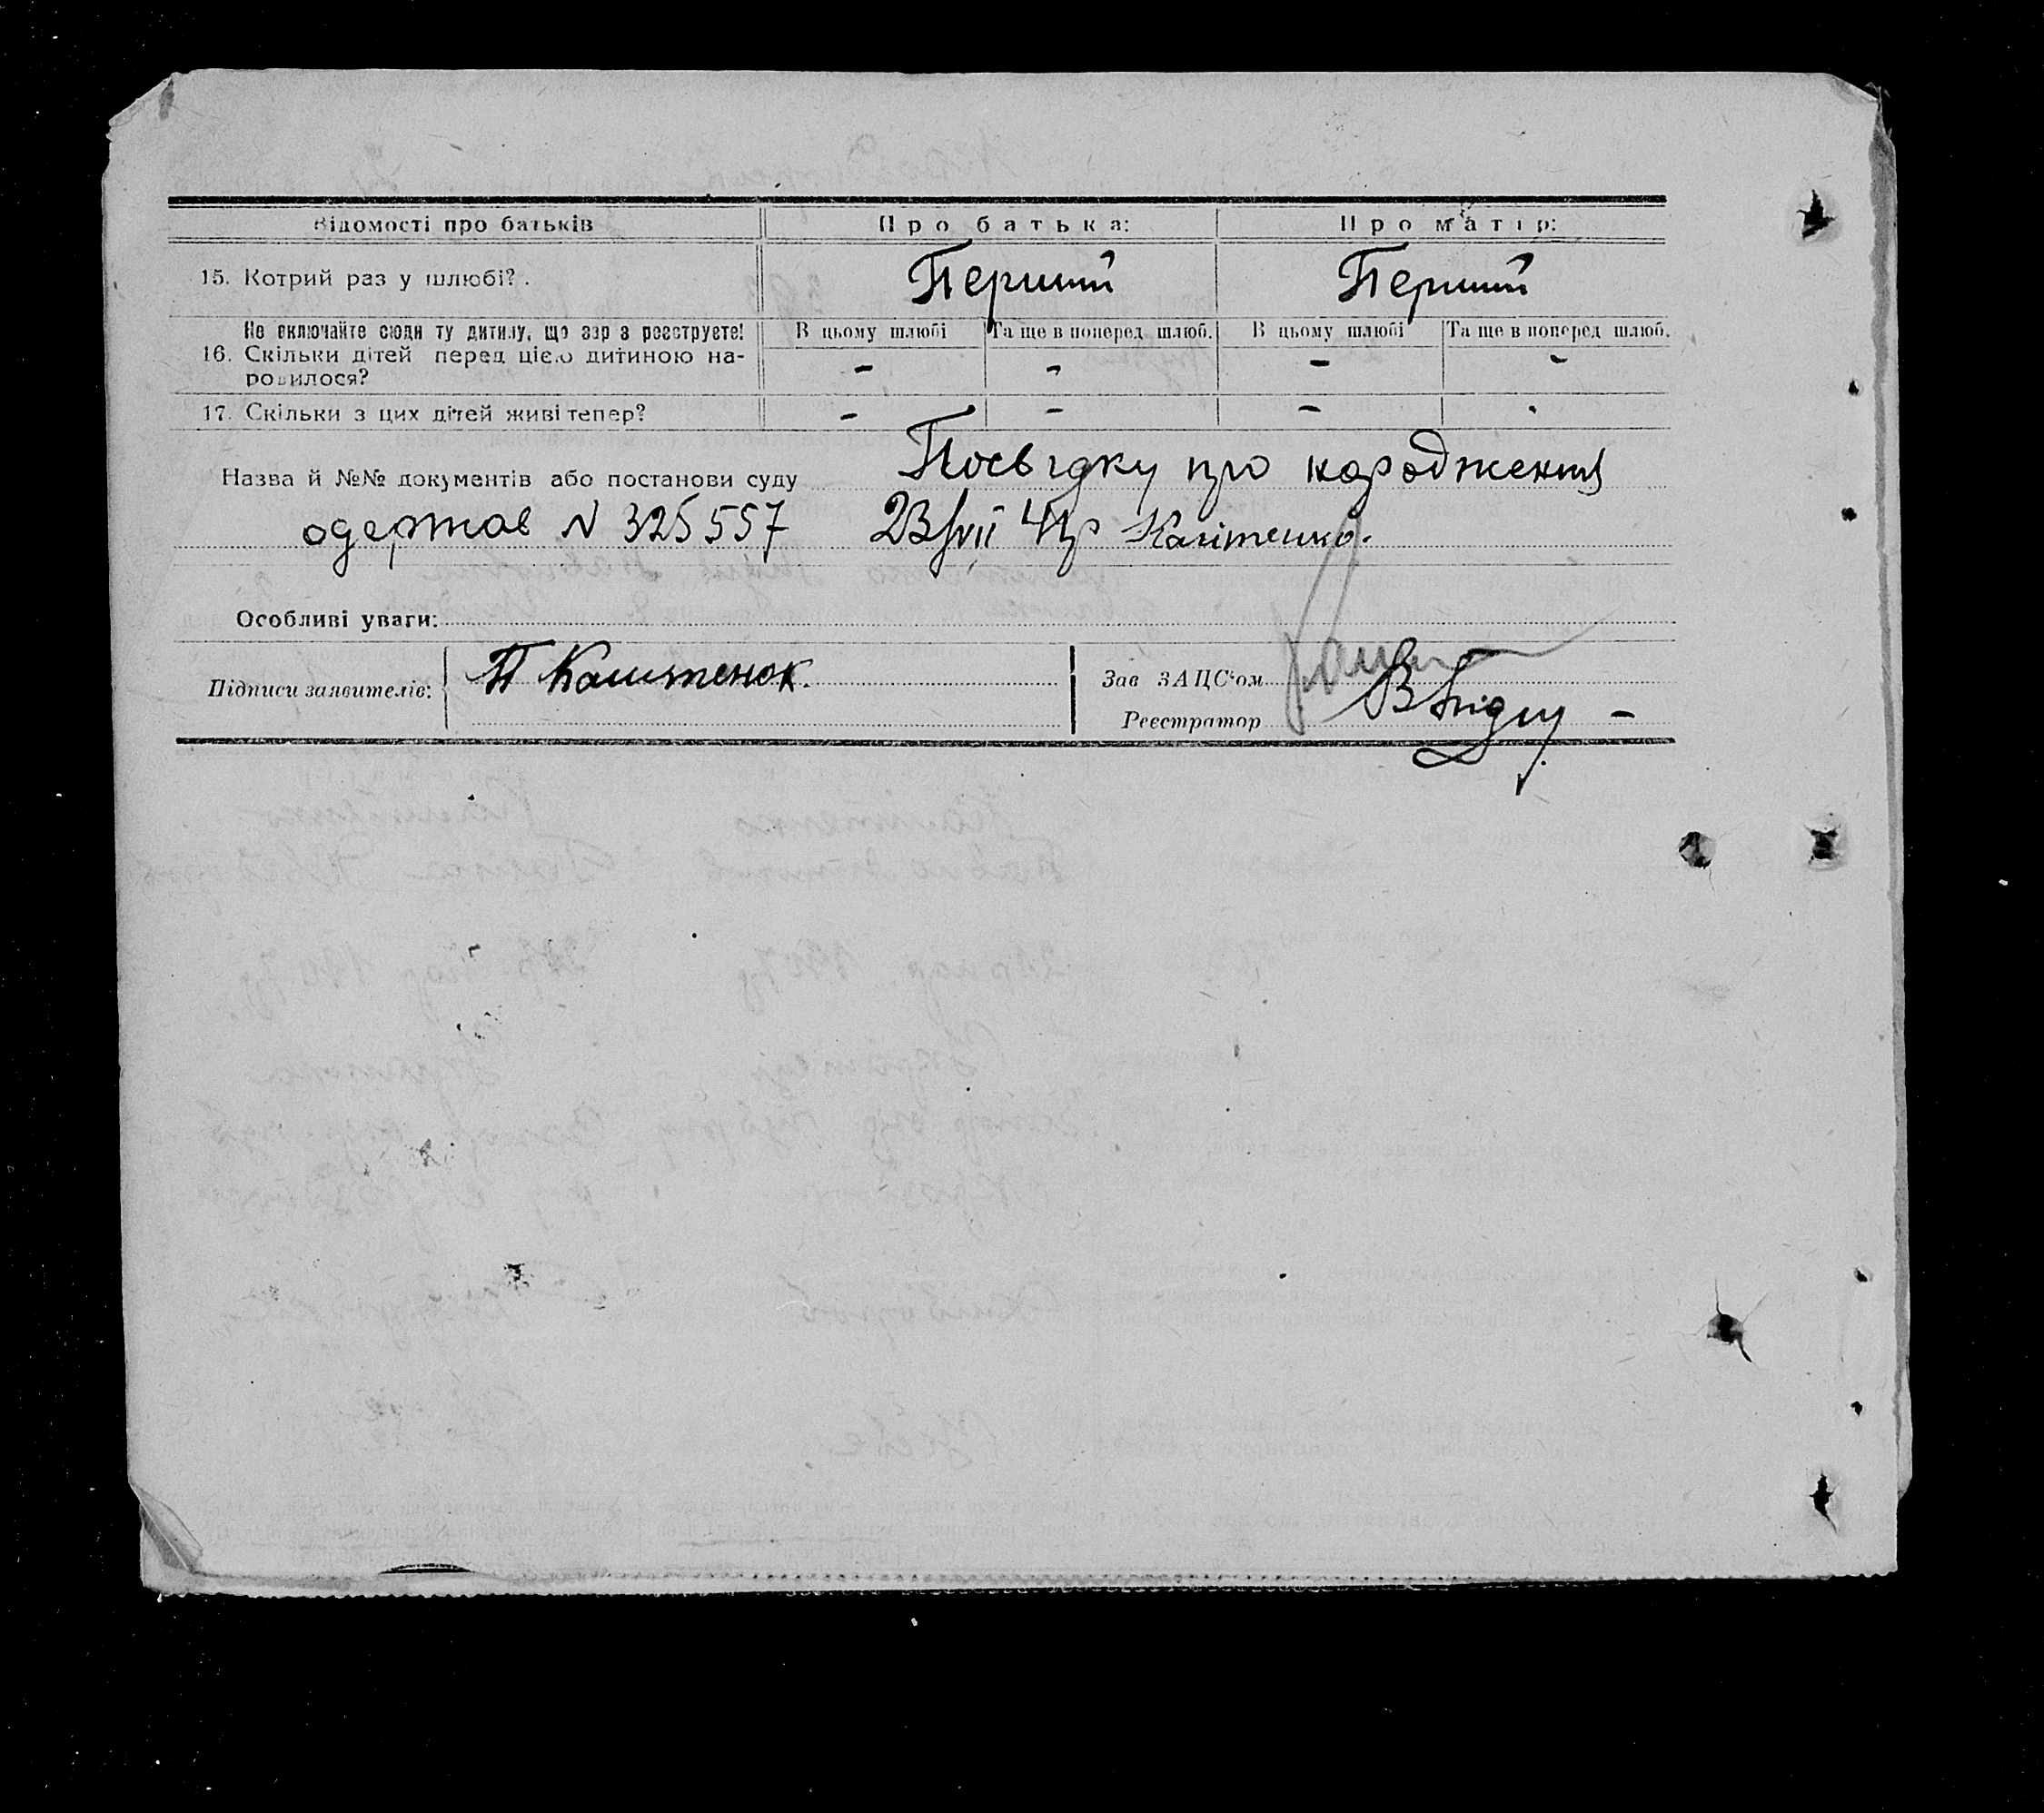 Відомості про батьків Про батька: Про матір:
15. Котрий раз у шлюбі? Перший Перший
Не включайте сюди ту дитину, що зараз реєструєте! В цьому шлюбі Та ще в поперед. шлюб. В цьому шлюбі Та ще в поперед шлюб.
16. Скільки дітей перед цією дитиною на- - - - -
родилося?
17. Скільки з цих дітей живі тепер? - - - -
Назва й №№ документів або постанови суду Посвідку про народження
одержав N 325557 23/VII 41р
Особливі уваги:
Підписи заявителів: П Зав ЗАЦС'ом
Реєстратор